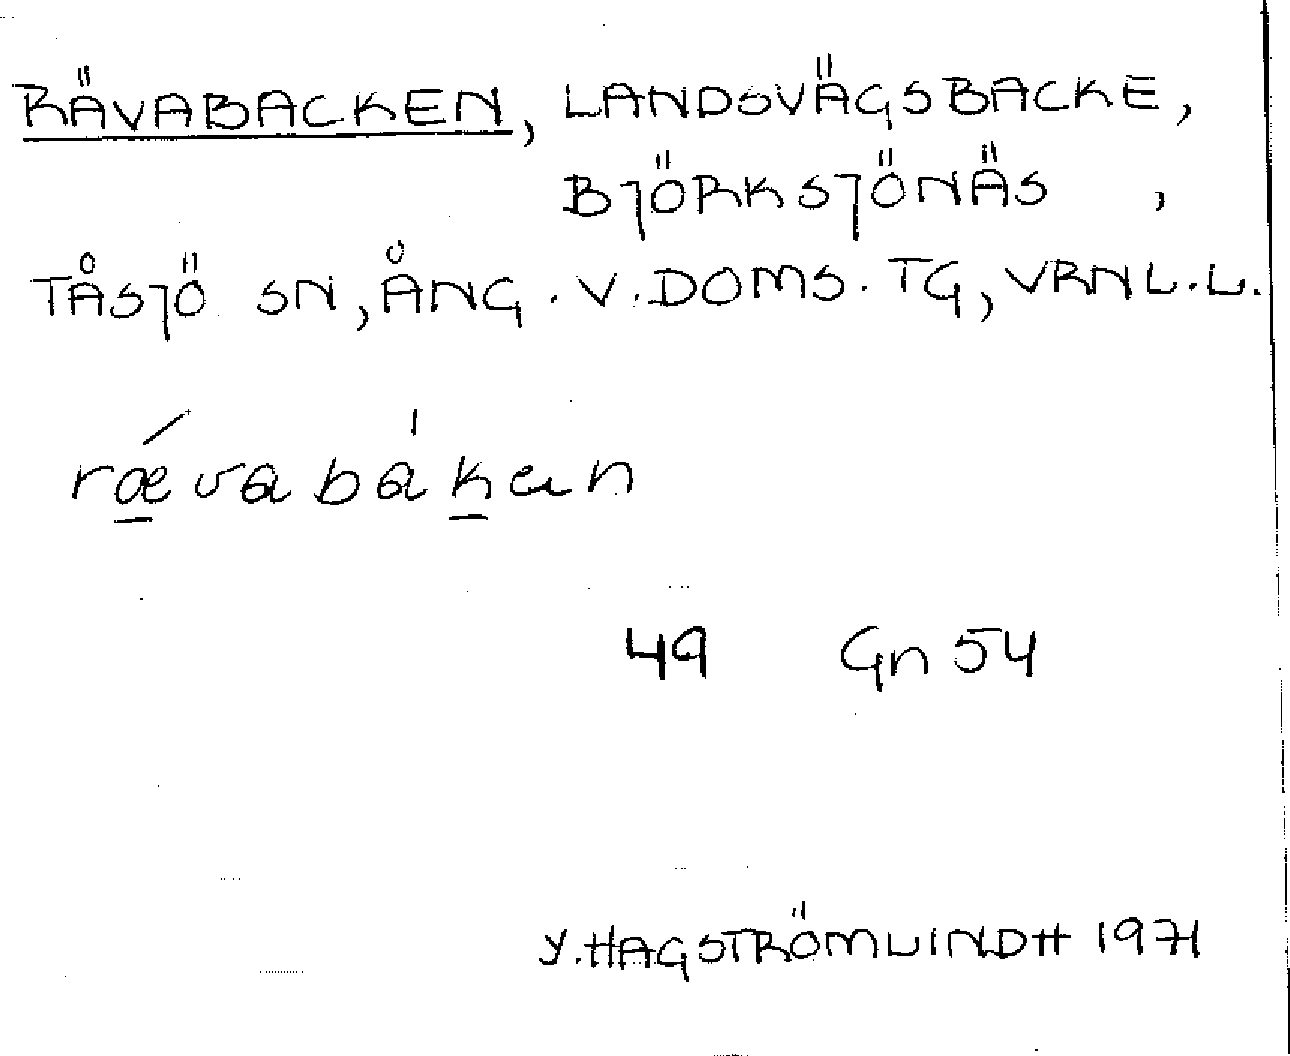 RÄVABACKEN, LANDSVÄGSBACKE,
BJÖRKSJÖNÄS,
TÅSJÖ SN, ÅNG. V. DOMS. TG, VRNL.L.
rævabàkan
49 Gn 54
Y. HAGSTRÖM LINDH 1971